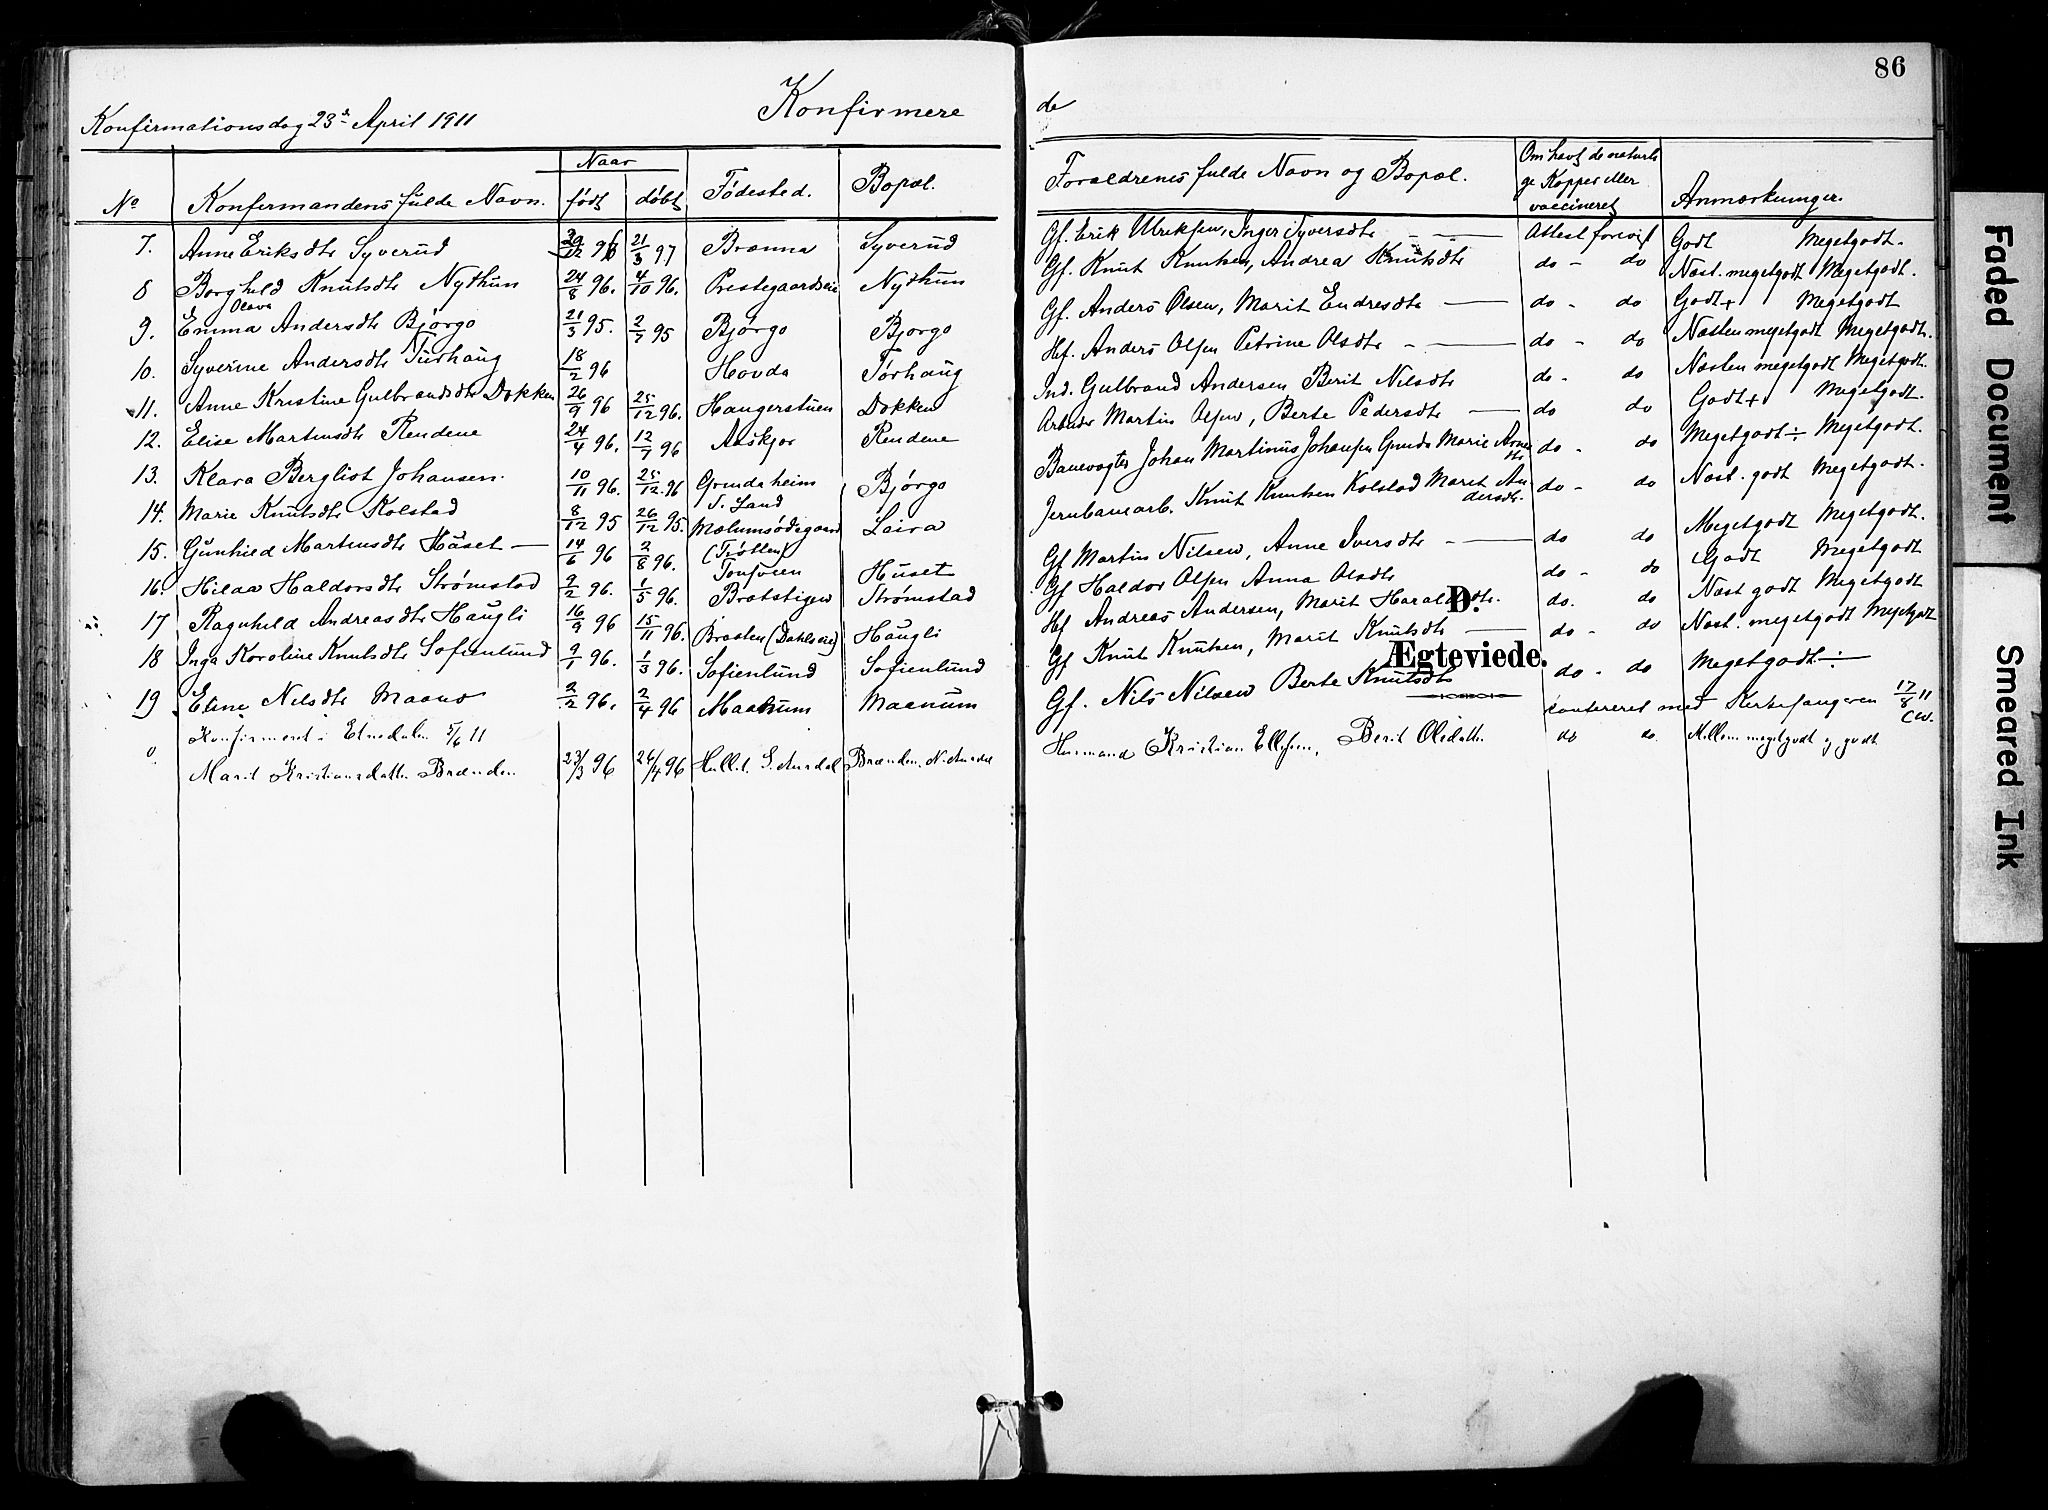 86
Konfirmationsdag 23de April 1911
Konfirmere
de
No Konfirmandens fulde Navn. Naar født døbt Fødested. Bopæl. Forældrenes fulde Navn og Bopæl. Om havt de naturlige Kopper eller vaccineret Anmærkninger.
7. Anne Eriksdtr Syverud 29/12 96 21/3 97 Brænna Syverud Gf. Erik Ulriksen, Inger Syversdtr Attest forevist Godt Megetgodt.
8 Borghild Knutsdtr Nythun 24/8 96. 4/10 96. Prestegaardseie Nythun Gf. Knut Knutsen, Andrea Knutsdtr do - do Næst. megetgodt Megetgodt.
9. Emma Olava Andersdtr Bjørgo 21/3 95. 2/7 95 Bjørgo Bjørgo Gf. Anders Olsen, Marit Endresdtr do - do Godt+ Megetgodt
10. Syverine Andersdtr Turhaug 18/2 96 Hovda Tørhaug Hf. Anders Olsen Petrine Olsdtr do - do Næsten megetgodt Megetgodt.
11. Anne Kristine Gulbrandsdtr Dokken 26/9 96 25/12 96. Haugerstuen Dokken Ind. Gulbrand Andersen Berit Nilsdtr do - do Næsten megetgodt Megetgodt.
12. Elise Martinsdtr Rendene 24/4 96. 12/7 96 Aaskjør Rendene Arbeider Martin Olsen, Berte Pedersdtr do do Godt+ Megetgodt.
13. Klara Bergliot Johansen. 10/11 96. 25/12 96 Grindaheim S. Land Bjørgo Banevogter Johan Martinus Johansen Gunda Marie Arnesdtr do - do Megetgodt÷ Megetgodt.
14. Marie Knutsdtr Kolstad 8/12 95 26/12 95. Molumsødegaard (Trotten) Leira Jernbanearb. Knut Knutsen Kolstad Marit Andersdtr. do - do Næst. godt Megetgodt.
15. Gunhild Martinsdtr Huset 14/6 96 2/8 96. Tonsveien Huset Gf Martin Nilsen, Anne Iversdtr do do Megetgodt Megetgodt.
16. Hilda Haldorsdtr Strømstad 2/2 96. 1/5 96. Bratstigen Strømstad Gf Haldor Olsen Anna Olsdtr do - do Godt Megetgodt
17 Ragnhild Andreasdtr Haugli 16/9 96 15/11 96. Braaten (Dahlseie) Haugli Hf Andreas Andersen, Marit Haraldsdtr. do. do Næst godt Megetgodt
18 Inga Karoline Knutsdtr Sofienlund 9/1 96. 1/3 96. Sofienlund Sofienlund Gf Knut Knutsen, Marit Knutsdtr do - do Næst. megetgodt Megetgodt
19 Eline Nilsdtr Maano 2/2 96. 2/4 96 Maanum Maanum Gf. Nils Nilsen Berte Knutsdtr do - do Megetgodt÷
D.
Ægteviede.
med Kirkesangeren 17/8 11 CW.
Konfirmeret i Etnedalen 5/6 11
Marit Kristiansdatter Brænden 23/3 96 26/4 96 S. Aurdal Brænden. N. Aurdal Husmand Kristian Ellefsen, Berit Olsdatter do do. Mellem megetgodt og godt
Faded Document
Smeared Ink